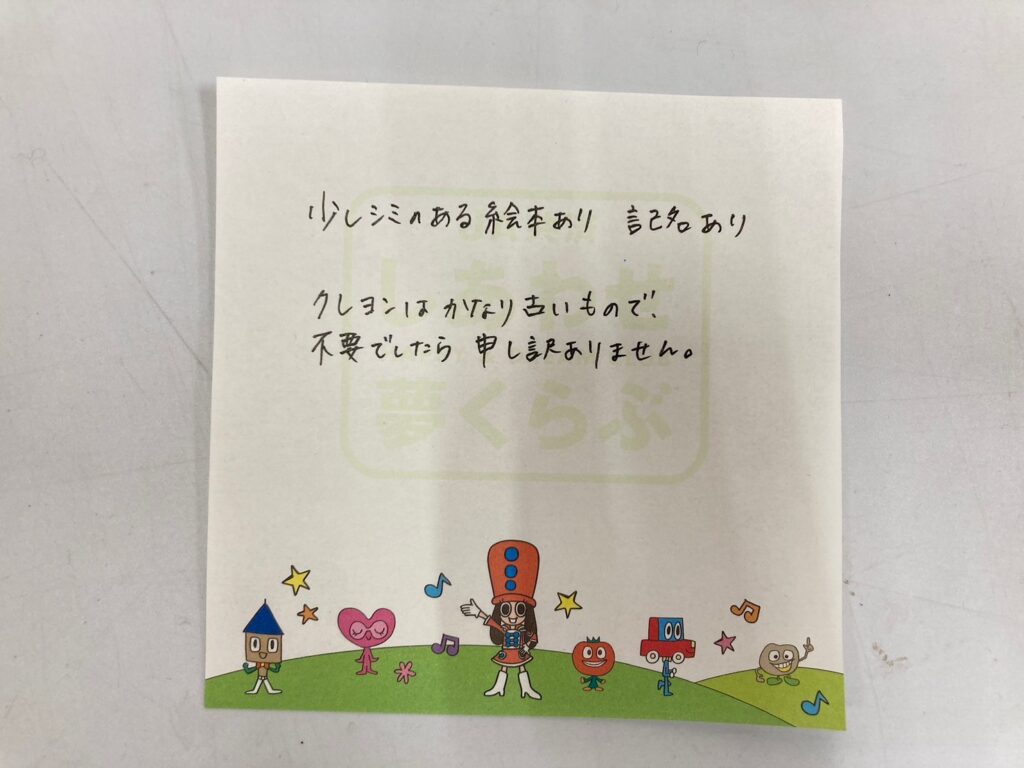 少しシミのある絵本あり　記名あり
クレヨンはかなり古いもので、
不要でしたら 申し訳ありません。
しあわせ
夢くらぶ